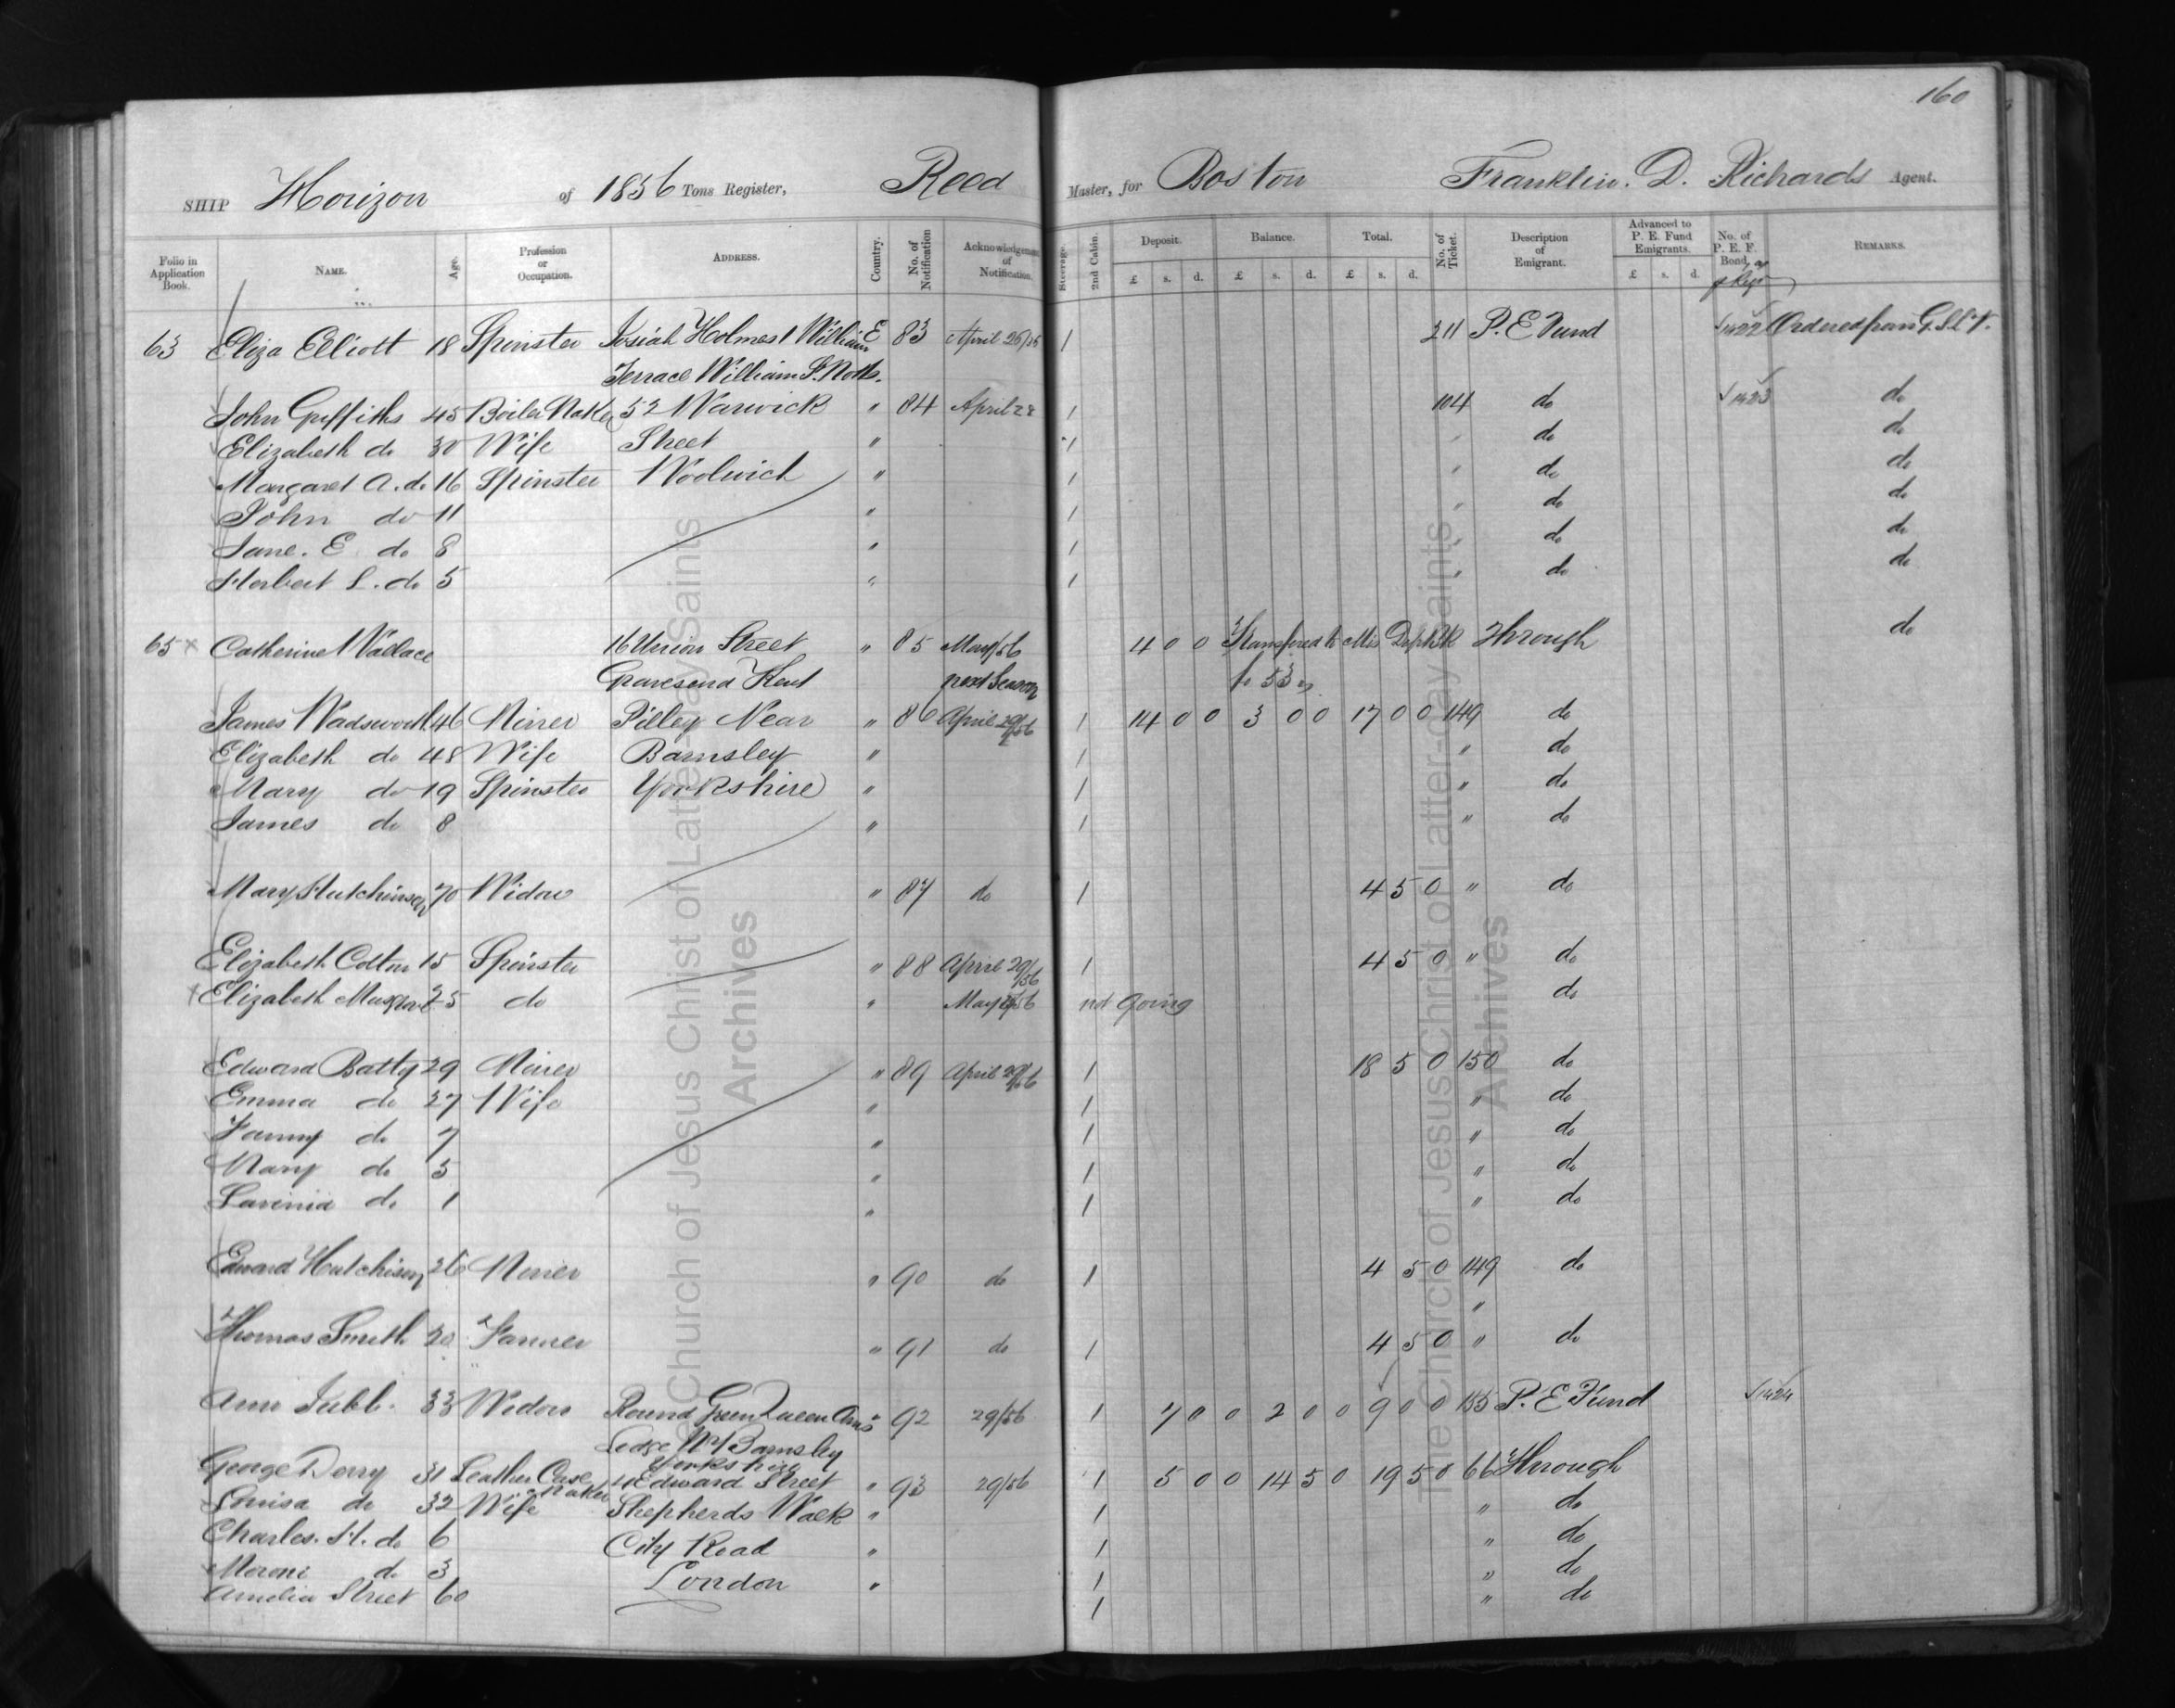 160
SHIP Horizon of 1856 Tons Register, Reed Master, for Boston Franklin. D. Richards Agent.
Folio in Application Book. NAME. Age. Profession or Occupation. ADDRESS. Country. No. of Notification Acknowledgement of Notification. Steerage. 2nd Cabin. Deposit. £ s. d. Balance. £ s. d. Total. £ s. d. No. of Ticket. Description of Emigrant. Advanced to P. E. Fund Emigrants. £ s. d. No. of P. E. F. Bond, REMARKS.
63 Eliza Elliott 18 Spinster Josiah Holmes 1 William E 83 April 26/56 1 211 P. E Fund 1422 Ordered from G. S. L. V.
Terrace William St. Notts.
John Griffiths 45 Boiler Maker 52 Warwick " 84 April 28 1 104 do 1423 do
Elizabeth do 30 Wife Street " 1 " do do
Margaret A. do 16 Spinster Woolwich " 1 " do do
John do 11 " 1 " do do
Jane. E do 8 " 1 " do do
Herbert L. do 5 " 1 " do do
65 x Catherine Wallace 16 Union Street " 85 May/56 4 0 0 Transfered to Mis Through do
Gravesend Kent next Season fo 53
James Wadsworth 46 Miner Pilley Near " 86 April 29/56 1 14 0 0 3 0 0 17 0 0 149 do
Elizabeth do 48 Wife Barnsley " 1 " do
Mary do 19 Spinster Yorkshire " 1 " do
James do 8 " 1 " do
Mary Hutchinson 70 Widow " 87 do 1 4 5 0 " do
Elizabeth Colton 15 Spinster " 88 April 29/56 1 4 5 0 " do
x Elizabeth 25 do " May /56 not Going do
Edward Batty 29 Miner " 89 April 29/56 1 18 5 0 150 do
Emma do 27 Wife " 1 " do
Fanny do 7 " 1 " do
Mary do 5 " 1 " do
Lavinia do 1 " 1 " do
Edward Hutchison 26 Miner " 90 do 1 4 5 0 149 do
"
Thomas Smith 20 Farmer " 91 do 1 4 5 0 " do
Ann Jubb. 33 Widow Round Green Queen Ann's " 92 29/56 1 7 0 0 2 0 0 9 0 0 155 P. E Fund 1424
Ledge Nr Barnsley
Yorkshire
George Derry 31 Leather Case Maker 4 Edward Street " 93 29/56 1 5 0 0 14 5 0 19 5 0 66 Through
Louisa do 32 Wife Shepherds Walk " 1 " do
Charles. H. do 6 City Road " 1 " do
Moroni do 3 London " 1 " do
Amelia Street 60 1 " do
The Church of Jesus Christ of Latter-day Saints Archives
The Church of Jesus Christ of Latter-day Saints Archives